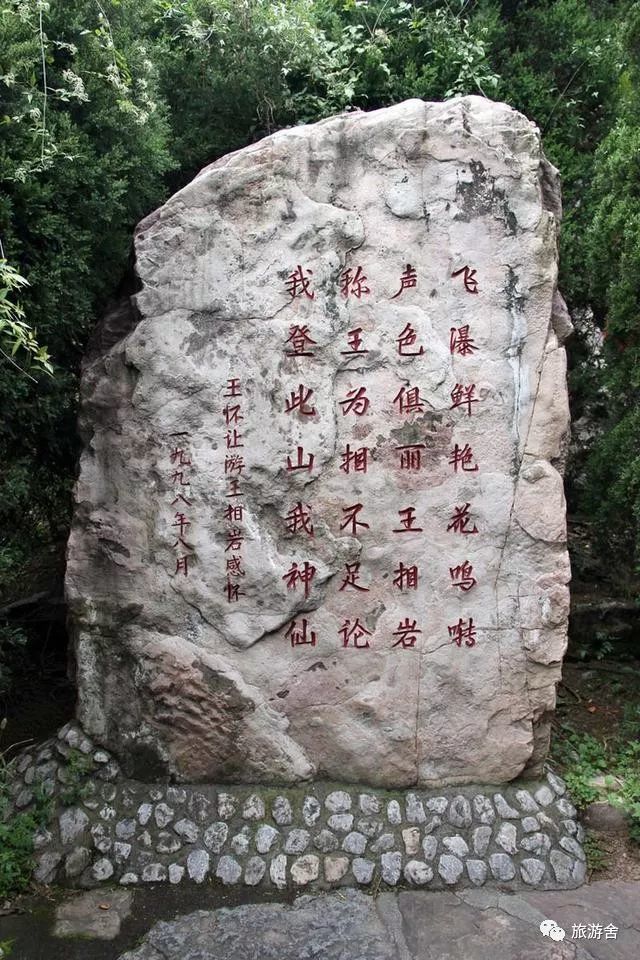 飞瀑鲜艳花鸣啭
声色俱丽王相岩
称王为相不足论
我登此山我神仙
王怀让游王相岩感怀
一九九八年八月
旅游舍